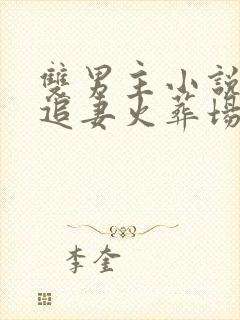 雙男主小說
追妻火葬場
李奎